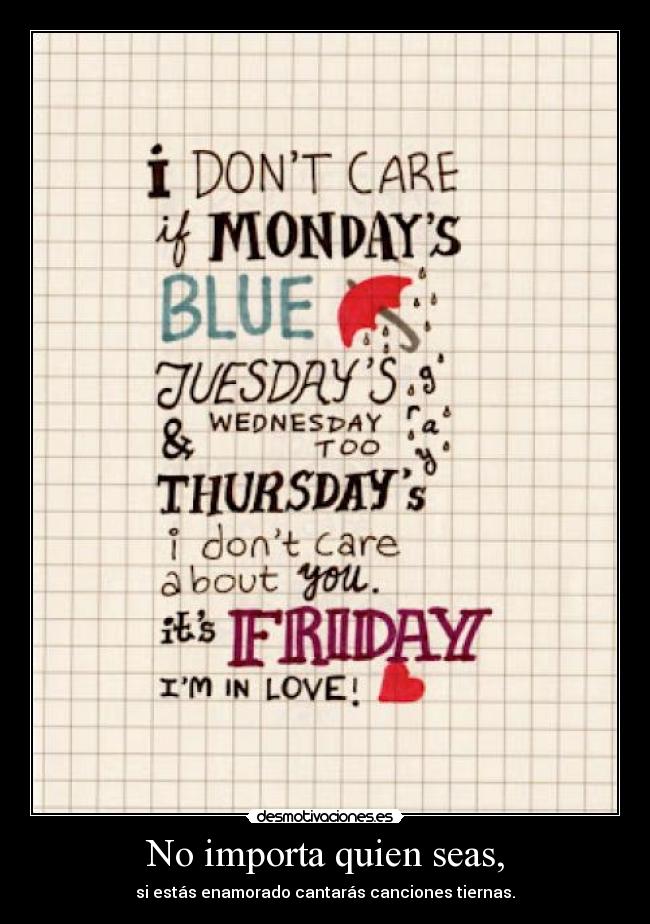 i DON'T CARE
if MONDAY'S
BLUE
TUESDAY'S gray
& WEDNESDAY
TOO
THURSDAY's
i don't care
about you.
it's FRIDAY
I'M IN LOVE!
desmotivaciones.es
No importa quien seas,
si estás enamorado cantarás canciones tiernas.